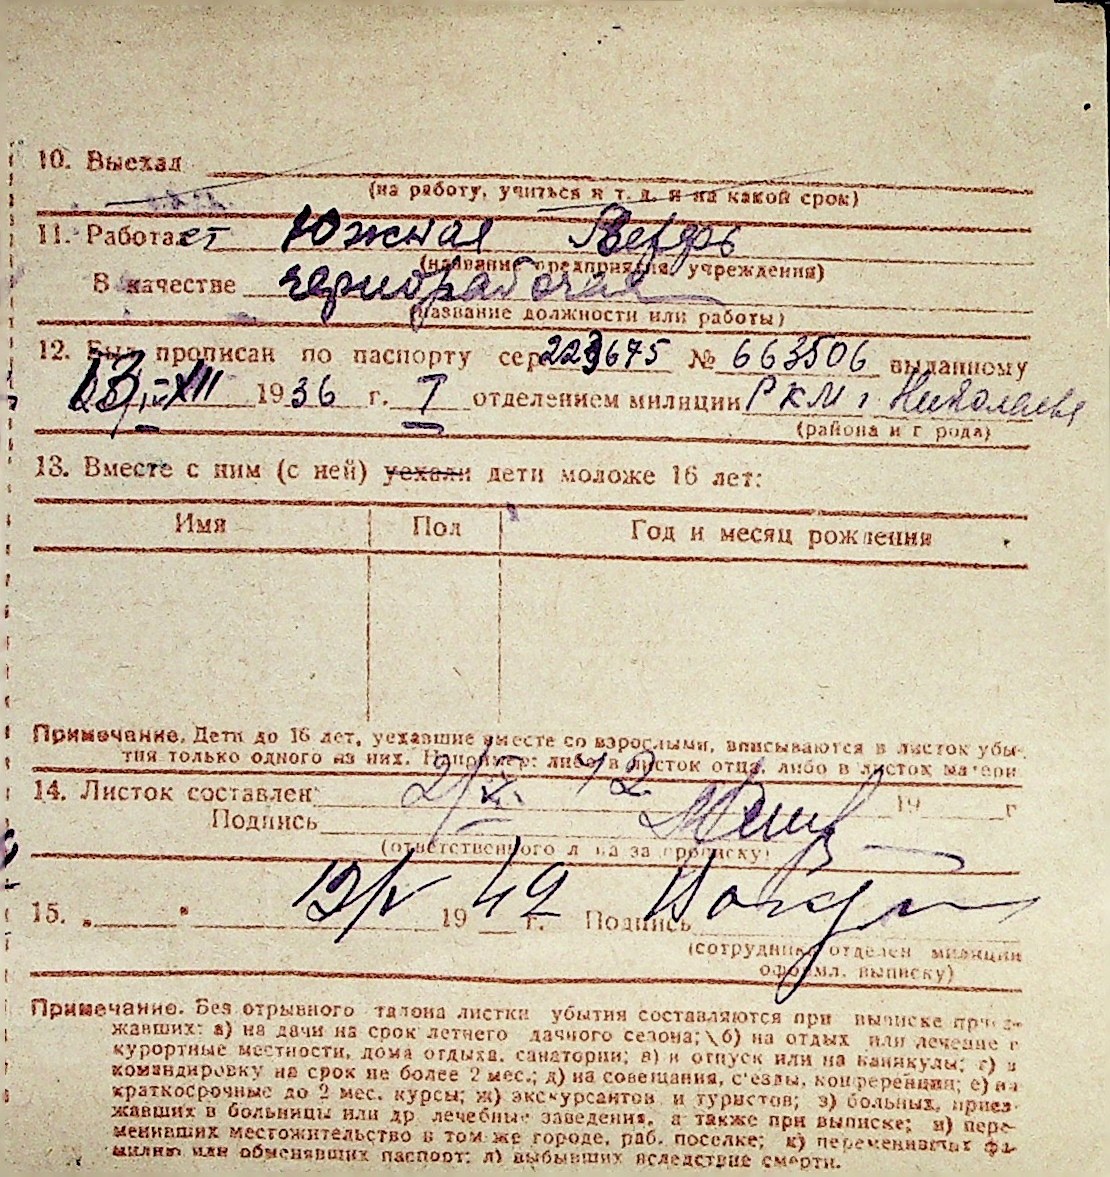 10. Выехал
(на работу, учиться и т. д. и на какой срок)
11. Работает Южная Верфь
(название предприятия, учреждения)
В качестве чернорабочая
(название должности или работы)
12. Был прописан по паспорту сер № 663506 выданному
XII 1936 г. I отделением милиции РКМ г Николаева
(района и города)
13. Вместе с ним (с ней) уехали дети моложе 16 лет:
Имя Пол Год и месяц рождения
Примечание. Дети до 16 лет, уехавшие вместе со взрослыми, вписываются в листок убы-
тия только одного из них. Например: либо в листок отца, либо в листок матери
14. Листок составлен 2/X. 42 19 г
Подпись
(ответственного л на за прописку)
15. „ " 12/V 1942 г. Подпись
(сотрудника отделен милиции
оформл. выписку)
Примечание. Без отрывного талона листки убытия составляются при выписке приез-
жавших: а) на дачи на срок летнего дачного сезона; б) на отдых или лечение в
курортные местности, дома отдыха, санатории; в) в отпуск или на каникулы; г) в
командировку на срок не более 2 мес.; д) на совещания, с'езды, конференции; е) на
краткосрочные до 2 мес. курсы; ж) экскурсантов и туристов; з) больных, приез-
жавших в больницы или др. лечебные заведения, а также при выписке; и) пере-
менивших местожительство в том же городе, раб. поселке; к) переменивших фа-
милию или обменявших паспорт; л) выбывших вследствие смерти.